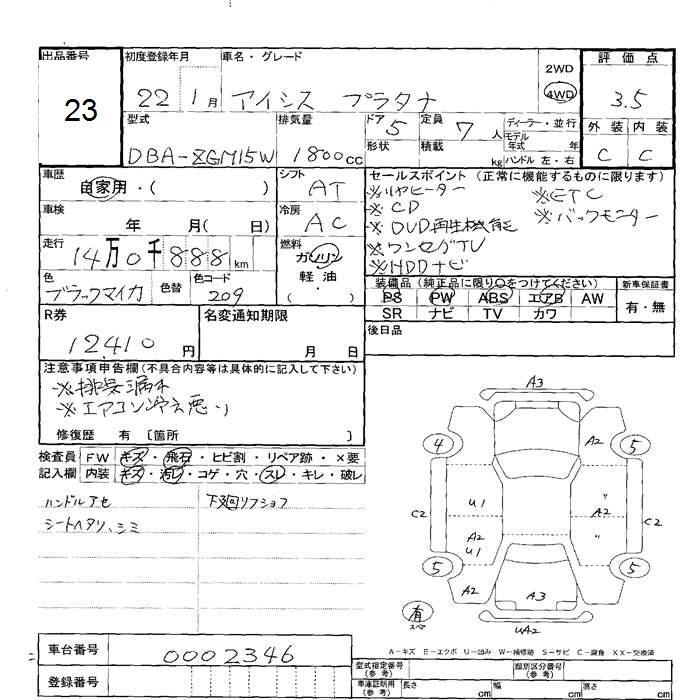 出品番号 初度登録年月 車名・グレード 2WD 評価点
23 22 1月 アイシス プラタナ 4WD 3.5
型式 排気量 ドア 5 定員 7人 ディーラー・並行 外装 内装
DBA-ZGM15W 1800cc 形状 積載 kg モデル年式 年 ハンドル 左・右 C C
車歴 自家用・( ) シフト AT セールスポイント (正常に機能するものに限ります)
※リヤヒーター ※ETC
車検 年 月( 日) 冷房 AC ※CD ※バックモニター
※DVD再生機能
走行 14万0千888km 燃料 ガソリン ※ワンセグTV
軽油 ※HDDナビ
色 ブラックマイカ 色替 色コード 209 ( ・ ) 装備品 (純正品に限り○をつけてください) 新車保証書
PS PW ABS エアB AW 有・無
R券 名変通知期限 SR ナビ TV カワ
12,410円 月 日 後日品
注意事項申告欄 (不具合内容等は具体的に記入して下さい)
※排気漏れ
※エアコン冷え悪い
修復歴 有 〔箇所 〕
検査員 FW キズ・飛石・ヒビ割・リペア跡・×要
記入欄 内装 キズ・汚れ・コゲ・穴・スレ・キレ・破レ
ハンドルアセ 下廻リフショク
シートヘタリ、シミ
A3
4 A2 5
U1 〃
C2 A2 A2 C2
U1 〃
5 A2 A3 5
有 スペア UA2
A-キズ E-エクボ U-凹み W-補修跡 S-サビ C-腐食 XX-交換済
車台番号 0002346 型式指定番号 (参考) 類別区分番号 (参考)
登録番号 車庫証明用 (参考) 長さ cm 幅 cm 高さ cm